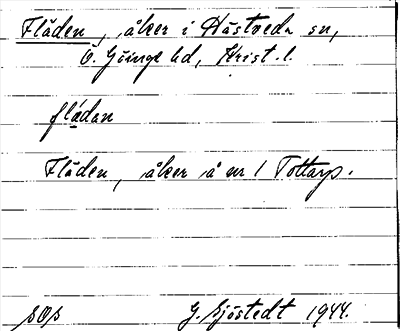 Flåden, åker i Hästveda sn,
Ö. Göinge hd, Krist. l.
flådan
Fläden, åker å nr 1 Tottarp.
sos G. Sjöstedt 1944.